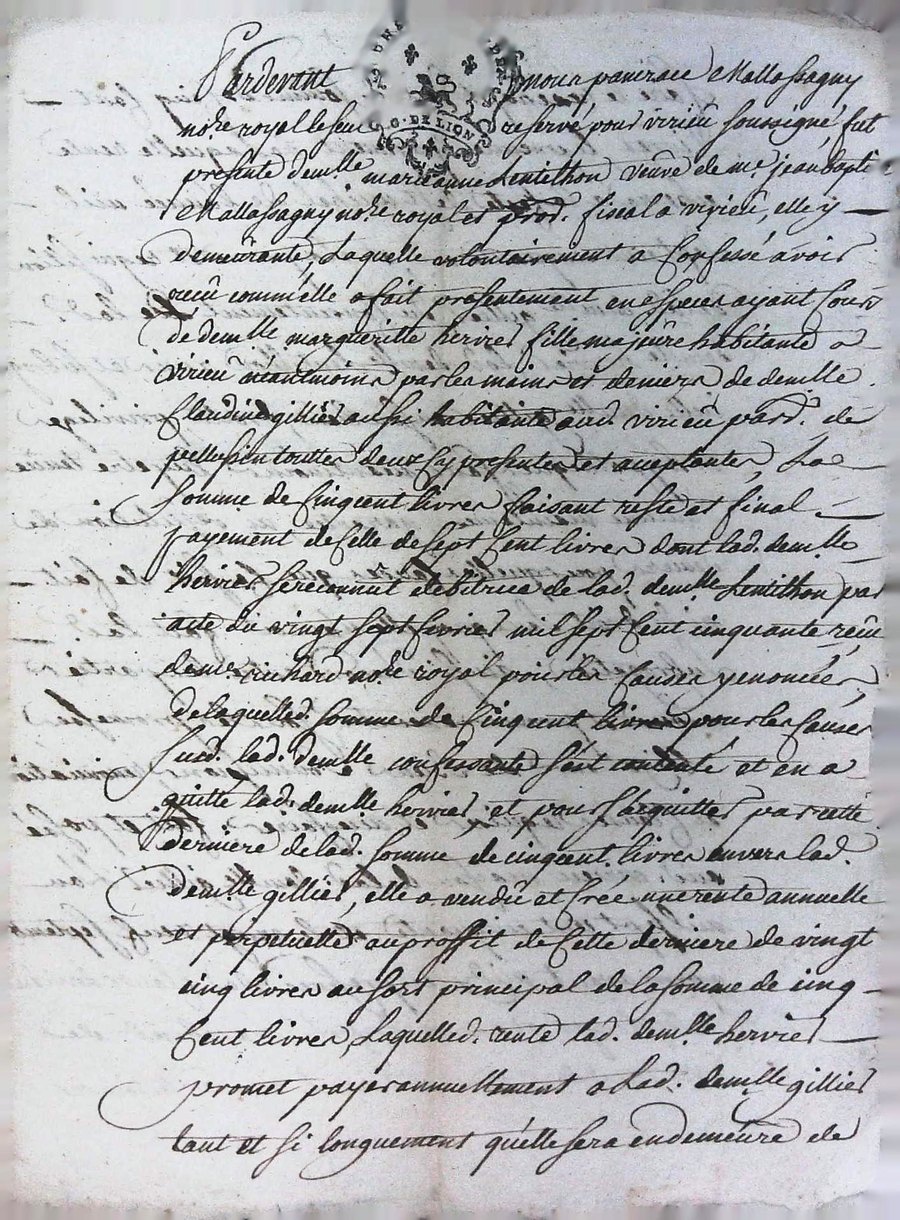 G. DE LION
Pardevant nous pancrace Mallassagny
no.re royal le seul reservé pour virieû soussigné, fut
presente dem.lle marieanne Lentilhon veuve de m.e jean bapt.e
Mallassagny no.re royal et prod. fiscal a virieû, elle y
demeûrante, Laquelle volontairement a Confessé avoir
reçû comm'elle a fait presentement en especes ayant Cours
de dem.lle margueritte hervier fille majeûre habitante a
virieû néantmoins par les mains et deniers de dem.lle
Claudine gillier aussi habitante aud. virieû par.d. de
pellussin touttes deux Cy presentes et acceptantes, La
somme de Cinq cent livres faisant reste et final
payement de Celle de sept Cent livres dont lad. dem.lle
hervier se reconnut debitrice de lad. dem.lle Lentilhon par
acte du vingt sept fevrier mil sept Cent cinquante reçu
de m.e richard no.re royal pour les Causes y enoncées,
de laquelled. somme de Cinq cent livres pour les Causes
susd. lad. dem.lle confessante s'est contenté et en a
quitté lad. dem.lle hervier, et pour s'acquitter par cette
derniere de lad. somme de cinq cent livres envers lad.
dem.lle gillier, elle a vendû et Créé une rente annuelle
et perpetuelle au proffit de Cette derniere de vingt
cinq livres au sort principal de la somme de cinq
Cent livres, Laquelled. rente lad. dem.lle hervier
promet payer annuellement a lad. dem.lle gillier
tant et si longuement qu'elle sera en demeûre de